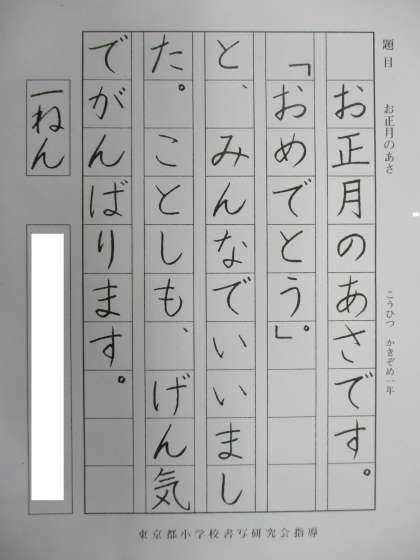 題目　お正月のあさ　こうひつ　かきぞめ一年
お正月のあさです。
「おめでとう」。
と、みんなでいいまし
た。ことしも、げん気
でがんばります。
一ねん
東京都小学校書写研究会指導